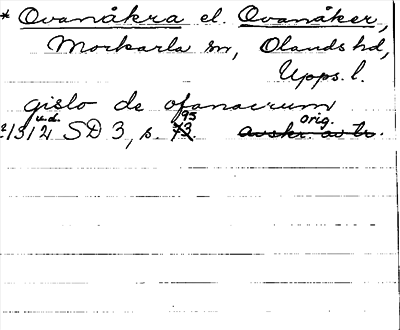 * Ovanåkra el. Ovanåker,
Morkarla sn, Olands hd,
Upps. l.
gislo de ofanacrum
1312 u.d. SD 3, s. 73 95 avskr. av tr. orig.